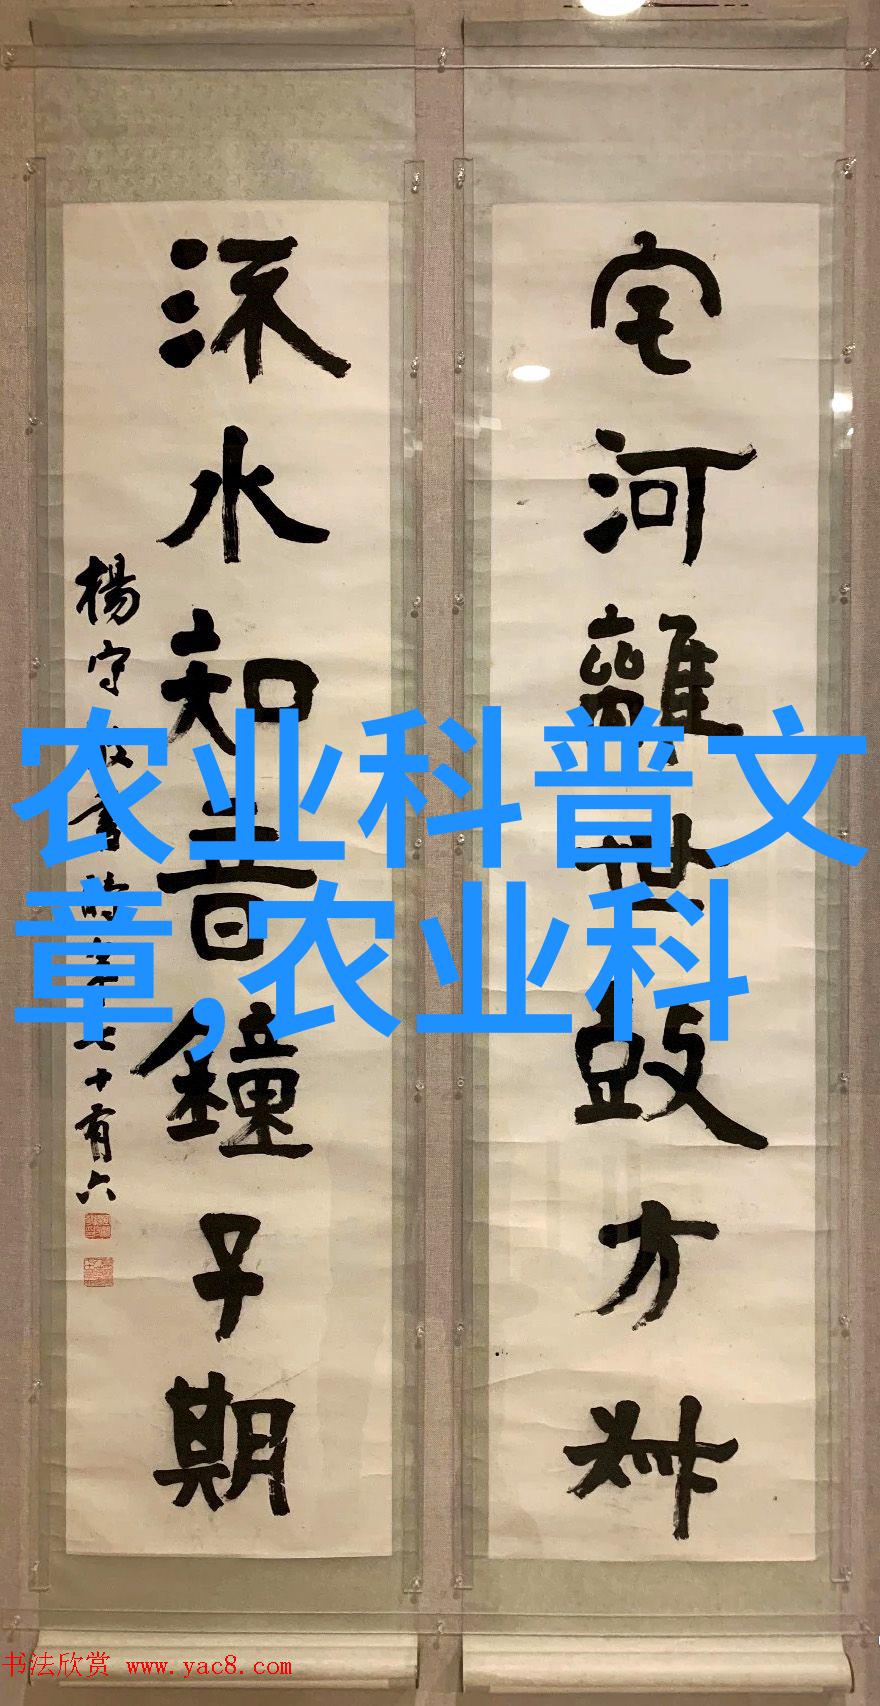 宅河離世鼓方叔
流水知音鐘子期
楊守敬書時年七十有六
农业科普文
章,农业科
书法欣赏 www.yac8.com